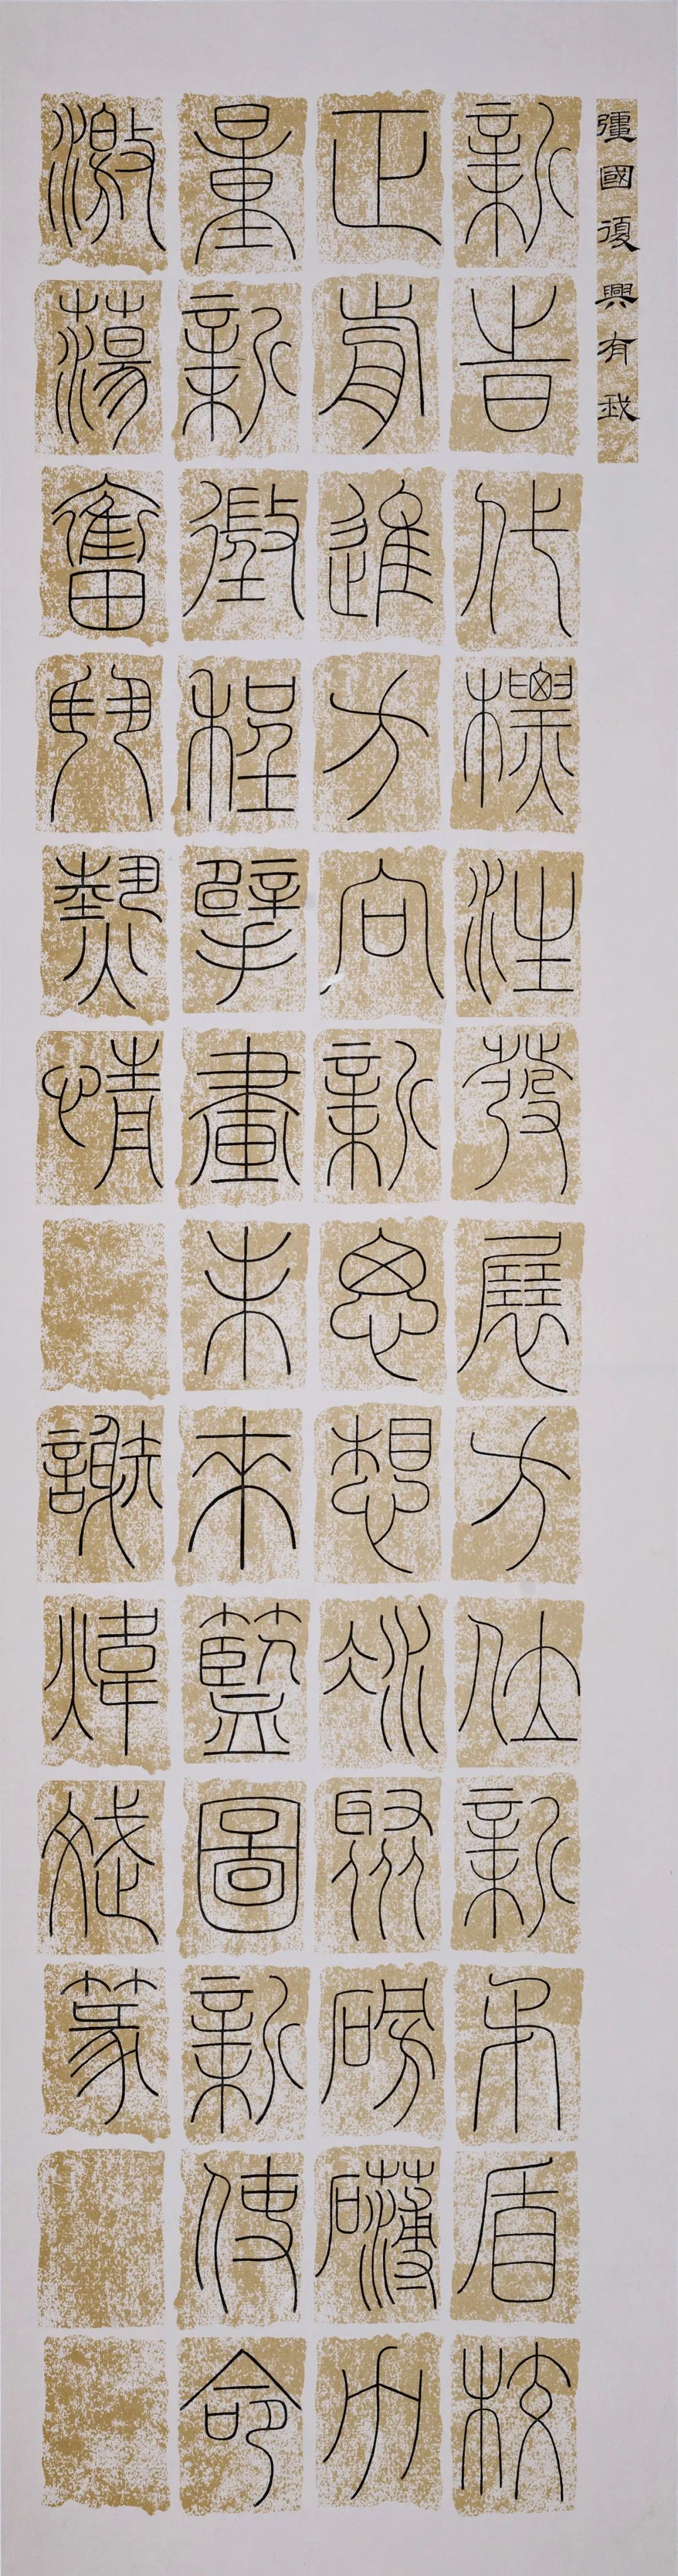 彊國復興有我
新時代標注發展方位新矛盾校
正前進方向新思想凝聚磅礴力
量新徵程擘畫未來藍圖新使命
激蕩奮鬥熱情 謝煒斌篆